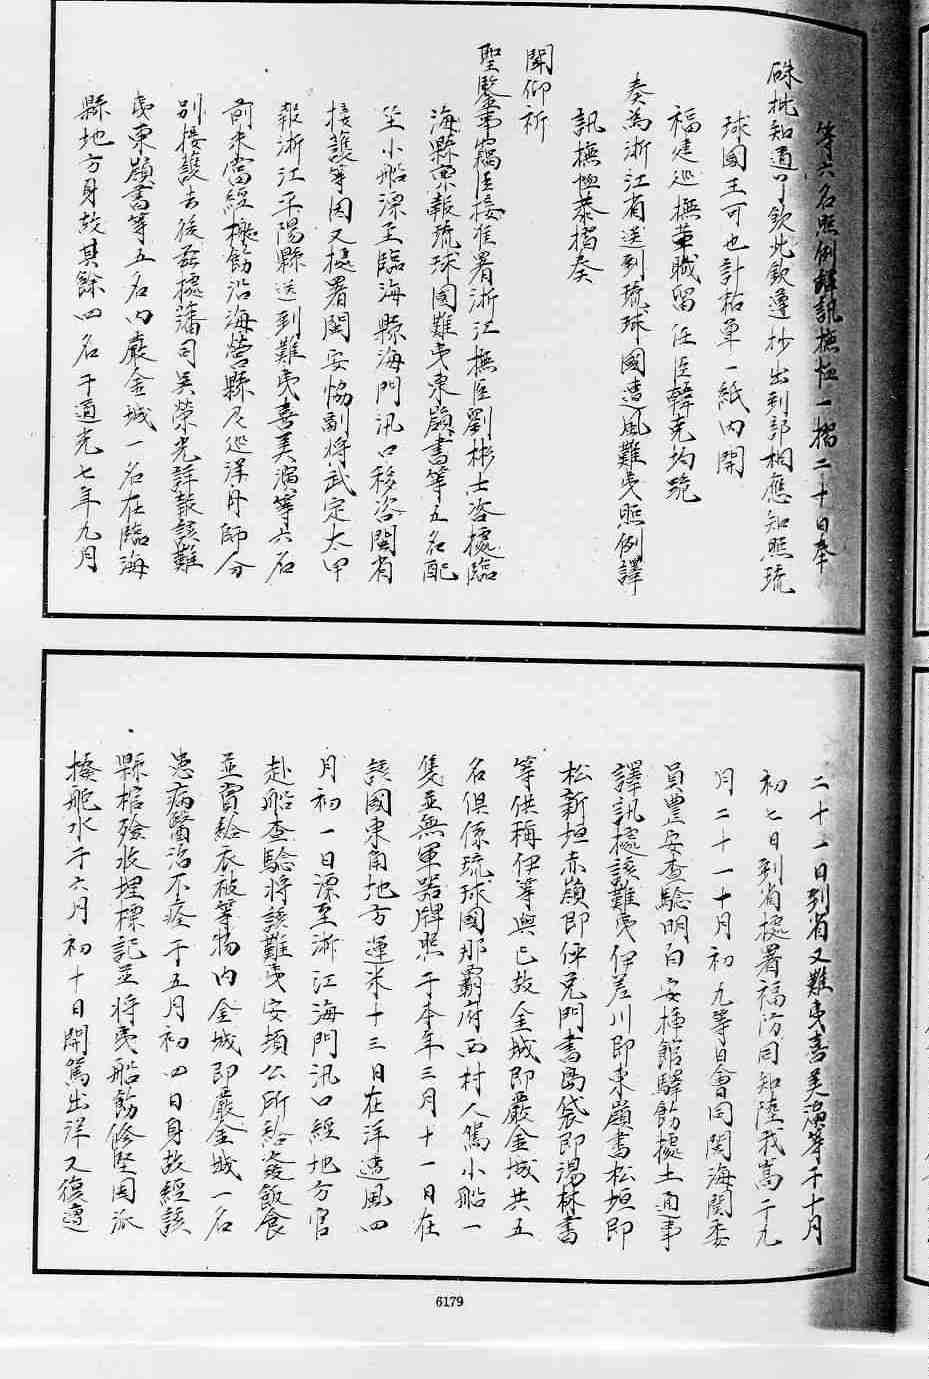 等六名照例譯訊撫恤一摺二十日奉
硃批知道了欽此欽遵抄出到部相應知照琉
球國王可也計粘單一紙內開
福建巡撫革職留任臣韓克均跪
奏為浙江省送到琉球國遭風難夷照例譯
訊撫恤恭摺奏
聞仰祈
聖鑒事竊臣接准署浙江撫臣劉彬士咨據臨
海縣稟報琉球國難夷東嶺書等五名配
坐小船漂至臨海縣海門汛口移咨閩省
接護等因又據署閩安協副將武定太申
報浙江平陽縣送到難夷喜美濱等六名
前來當經檄飭沿海營縣及巡洋舟師分
別接護去後茲據藩司吳榮光詳報該難
夷東嶺書等五名內嚴金城一名在臨海
縣地方身故其餘四名于道光七年九月
二十一日到省又難夷喜美濱等于十月
初七日到省據署福防同知陸我嵩于九
月二十一十月初九等日會同閩海關委
員豐安查驗明白安插館驛飭據土通事
譯訊據該難夷伊差川即東嶺書松垣即
松新垣赤嶺即伊克門書島袋即湯林書
等供稱伊等與已故金城即嚴金城共五
名俱係琉球國那霸府西村人駕小船一
隻並無軍器牌照于本年三月十一日在
該國東角地方運米十三日在洋遭風四
月初一日漂至浙江海門汛口經地方官
赴船查驗將該難夷安頓公所給發飯食
並賞給衣被等物內金城即嚴金城一名
患病醫治不痊于五月初四日身故經該
縣棺殮收埋標記並將夷船飭修堅固派
撥舵水于六月初十日開駕出洋又復遭
6179